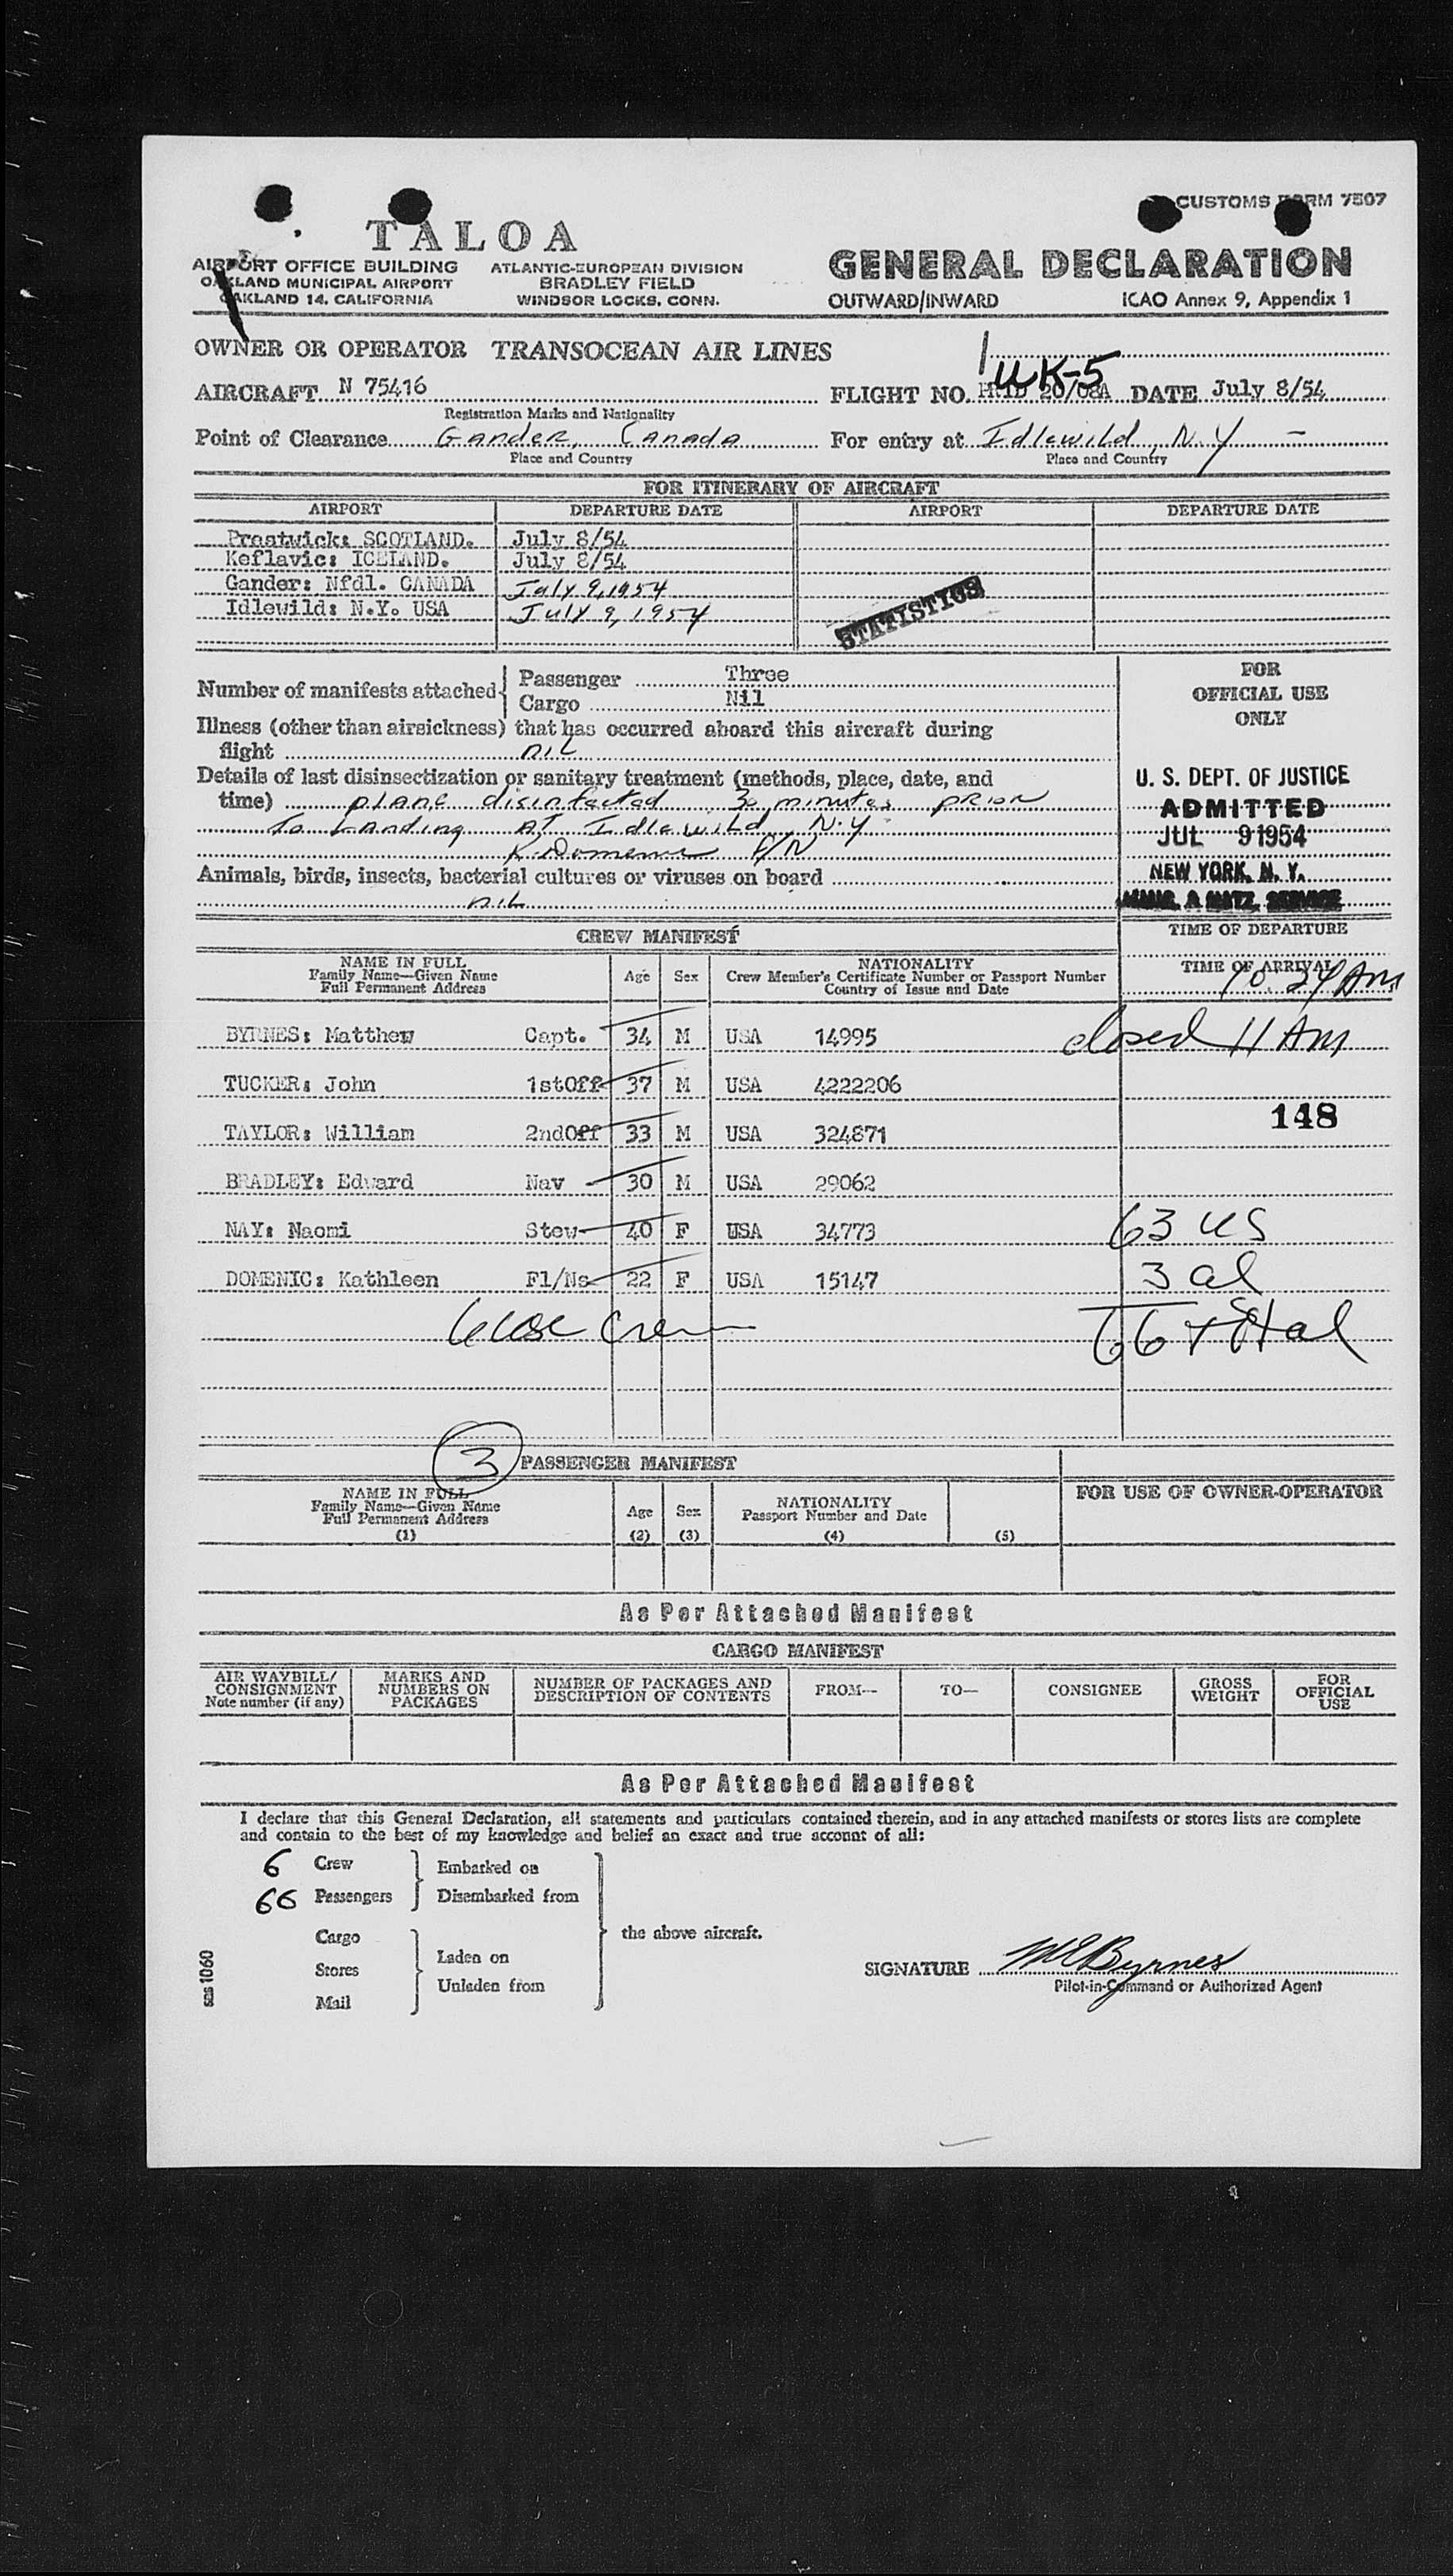 CUSTOMS FORM 7507
TALOA
AIRPORT OFFICE BUILDING
OAKLAND MUNICIPAL AIRPORT
OAKLAND 14, CALIFORNIA
ATLANTIC-EUROPEAN DIVISION
BRADLEY FIELD
WINDSOR LOCKS, CONN.
GENERAL DECLARATION
OUTWARD/INWARD ICAO Annex 9, Appendix 1
OWNER OR OPERATOR TRANSOCEAN AIR LINES
UK-5
AIRCRAFT N 75416 FLIGHT NO. 20/08A DATE July 8/54
Registration Marks and Nationality
Point of Clearance Gander, Canada For entry at Idlewild, N.Y -
Place and Country Place and Country
FOR ITINERARY OF AIRCRAFT
AIRPORT DEPARTURE DATE AIRPORT DEPARTURE DATE
Prestwick: SCOTLAND. July 8/54
Keflavic: ICELAND. July 8/54
Gander: Nfdl. CANADA July 9, 1954
Idlewild: N.Y. USA July 9, 1954
STATISTICS
Number of manifests attached Passenger Three
Cargo Nil
Illness (other than airsickness) that has occurred aboard this aircraft during
flight nil
Details of last disinsectization or sanitary treatment (methods, place, date, and
time) plane disinfected 30 minutes prior
To Landing AT Idlewild N.Y
K Domenic F/N
Animals, birds, insects, bacterial cultures or viruses on board
nil
FOR
OFFICIAL USE
ONLY
U. S. DEPT. OF JUSTICE
ADMITTED
JUL 9 1954
NEW YORK, N. Y.
IMMIG. & NATZ. SERVICE
TIME OF DEPARTURE
TIME OF ARRIVAL
10:24 AM
closed 11 AM
148
63 US
3 al
66 total
CREW MANIFEST
NAME IN FULL
Family Name—Given Name
Full Permanent Address
Age Sex
NATIONALITY
Crew Member's Certificate Number or Passport Number
Country of Issue and Date
BYRNES: Matthew Capt. 34 M USA 14995
TUCKER: John 1stOff 37 M USA 4222206
TAYLOR: William 2ndOff 33 M USA 324871
BRADLEY: Edward Nav 30 M USA 29062
NAY: Naomi Stew 40 F USA 34773
DOMENIC: Kathleen Fl/Ns 22 F USA 15147
6 usc crew
3 PASSENGER MANIFEST
NAME IN FULL
Family Name—Given Name
Full Permanent Address
(1)
Age
(2)
Sex
(3)
NATIONALITY
Passport Number and Date
(4)
(5)
FOR USE OF OWNER-OPERATOR
As Per Attached Manifest
CARGO MANIFEST
AIR WAYBILL/
CONSIGNMENT
Note number (if any)
MARKS AND
NUMBERS ON
PACKAGES
NUMBER OF PACKAGES AND
DESCRIPTION OF CONTENTS
FROM—
TO—
CONSIGNEE
GROSS
WEIGHT
FOR
OFFICIAL
USE
As Per Attached Manifest
I declare that this General Declaration, all statements and particulars contained therein, and in any attached manifests or stores lists are complete
and contain to the best of my knowledge and belief an exact and true account of all:
6 Crew Embarked on
66 Passengers Disembarked from
Cargo
the above aircraft.
Stores Laden on
Unladen from
Mail
SIGNATURE MEByrnes
Pilot-in-Command or Authorized Agent
sas 1060